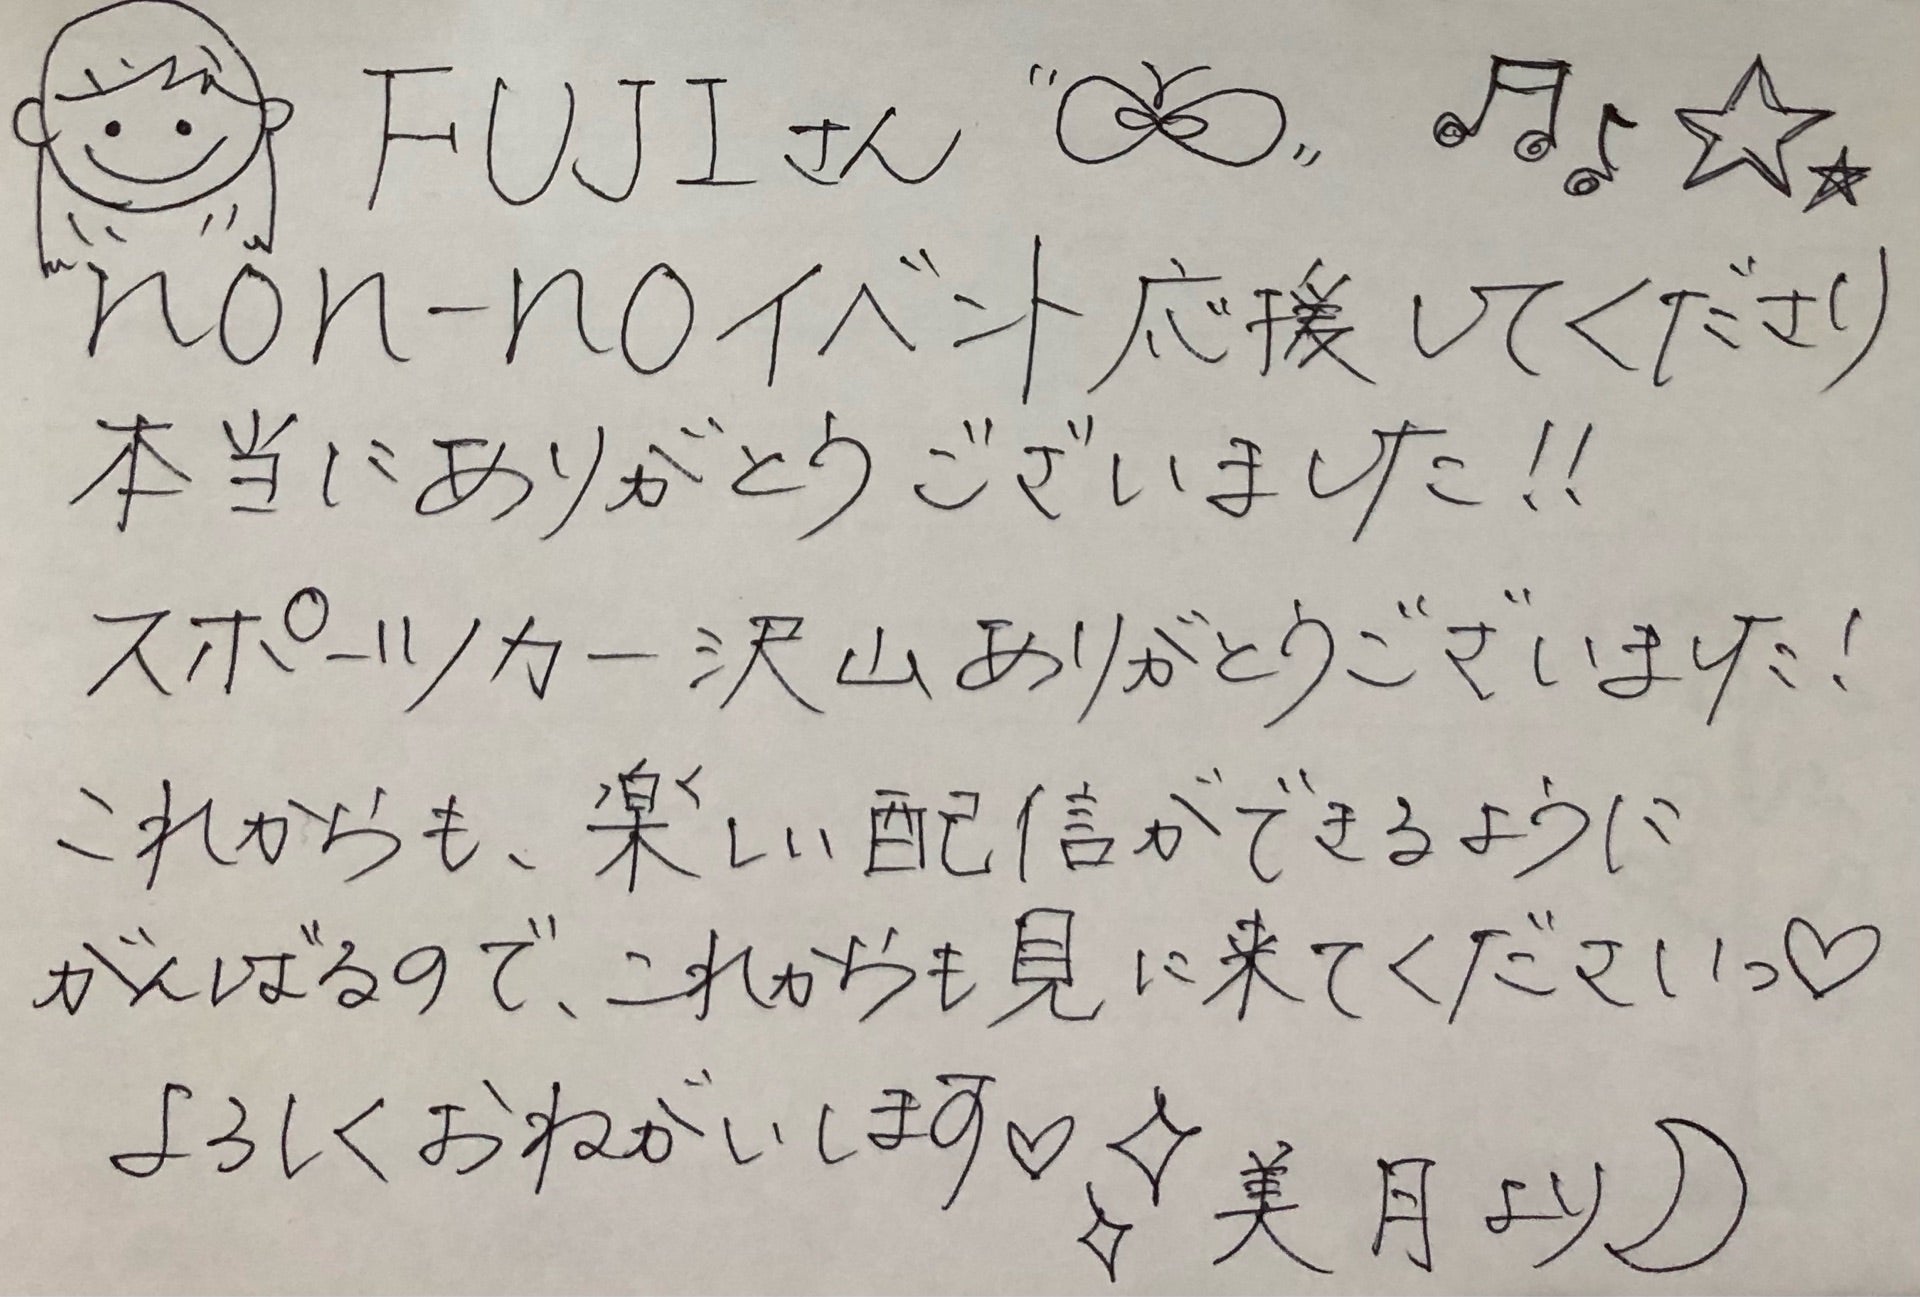 FUJIさん
non-noイベント応援してくださり
本当にありがとうございました!!
スポーツカー沢山ありがとうございました!
これからも、楽しい配信ができるように
がんばるので、これからも見に来てくださいっ♡
よろしくおねがいします♡
美月より